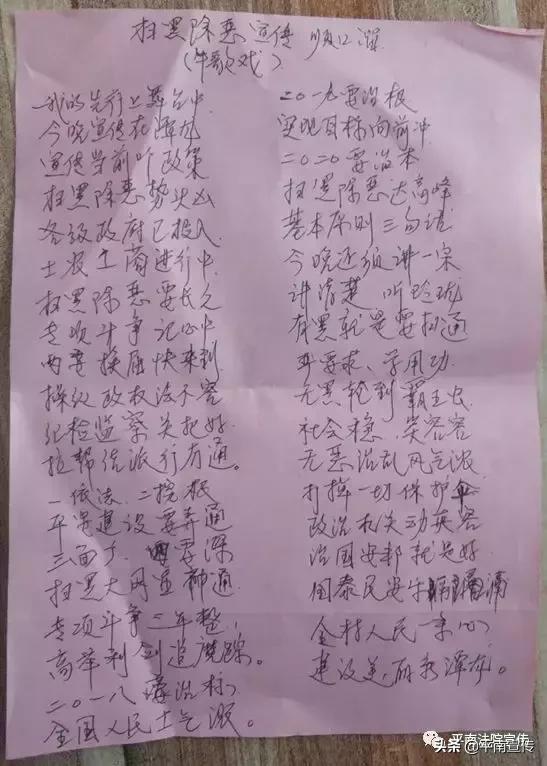 扫黑除恶宣传 顺口溜
(牛歌戏)
我的先行上舞台中
今晚宣传在潭龙
宣传当前吖政策
扫黑除恶势头凶
各级政府已投入
士农工商进行中
扫黑除恶要长久
专项斗争记心中
两委换届快来到
操纵政权法不容
纪检监察关把好
拉帮结派行冇通。
一依法、二挖根
平安建设要弄通
三面了 要深
扫黑大网显神通
专项斗争三年整,
高举利剑追魔踪。
二0一八要治标
全国人民士气浓。
二0一九要治根
实现目标向前冲
二0二0要治本
扫黑除恶达高峰
基本原则三句话
今晚还须讲一宗
讲清楚、听玲珑
有黑就是要扫通
平要求、学用功
无黑轮到霸王虫
社会稳、笑容容
无恶治乱风气浓
打掉一切保护伞
政治机关动真容
治国安邦就是好
国泰民安乐
全村人民一条心
建设美丽新潭龙。
平南法院宣传
头条@平南宣传